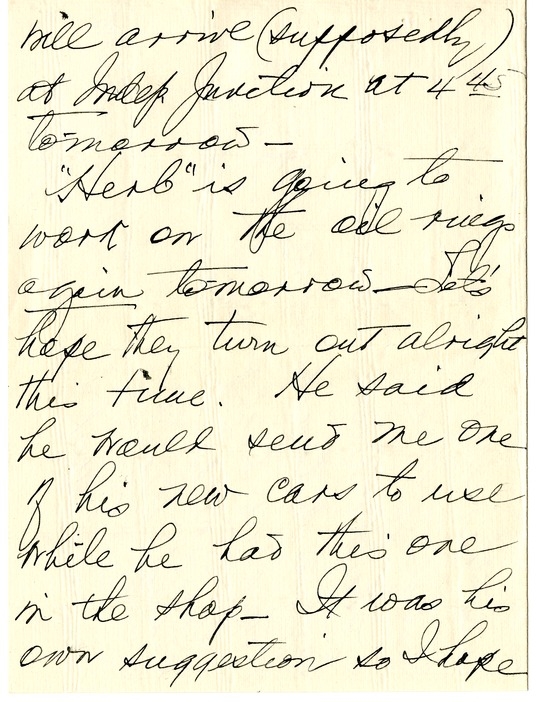 will arrive (supposedly)
at Indep Junction at 4 45
tomorrow—
"Herb" is going to
work on the oil rings
again tomorrow—Let's
hope they turn out alright
this time. He said
he would send me one
of his new cars to use
while he had this one
in the shop— It was his
own suggestion so I hope